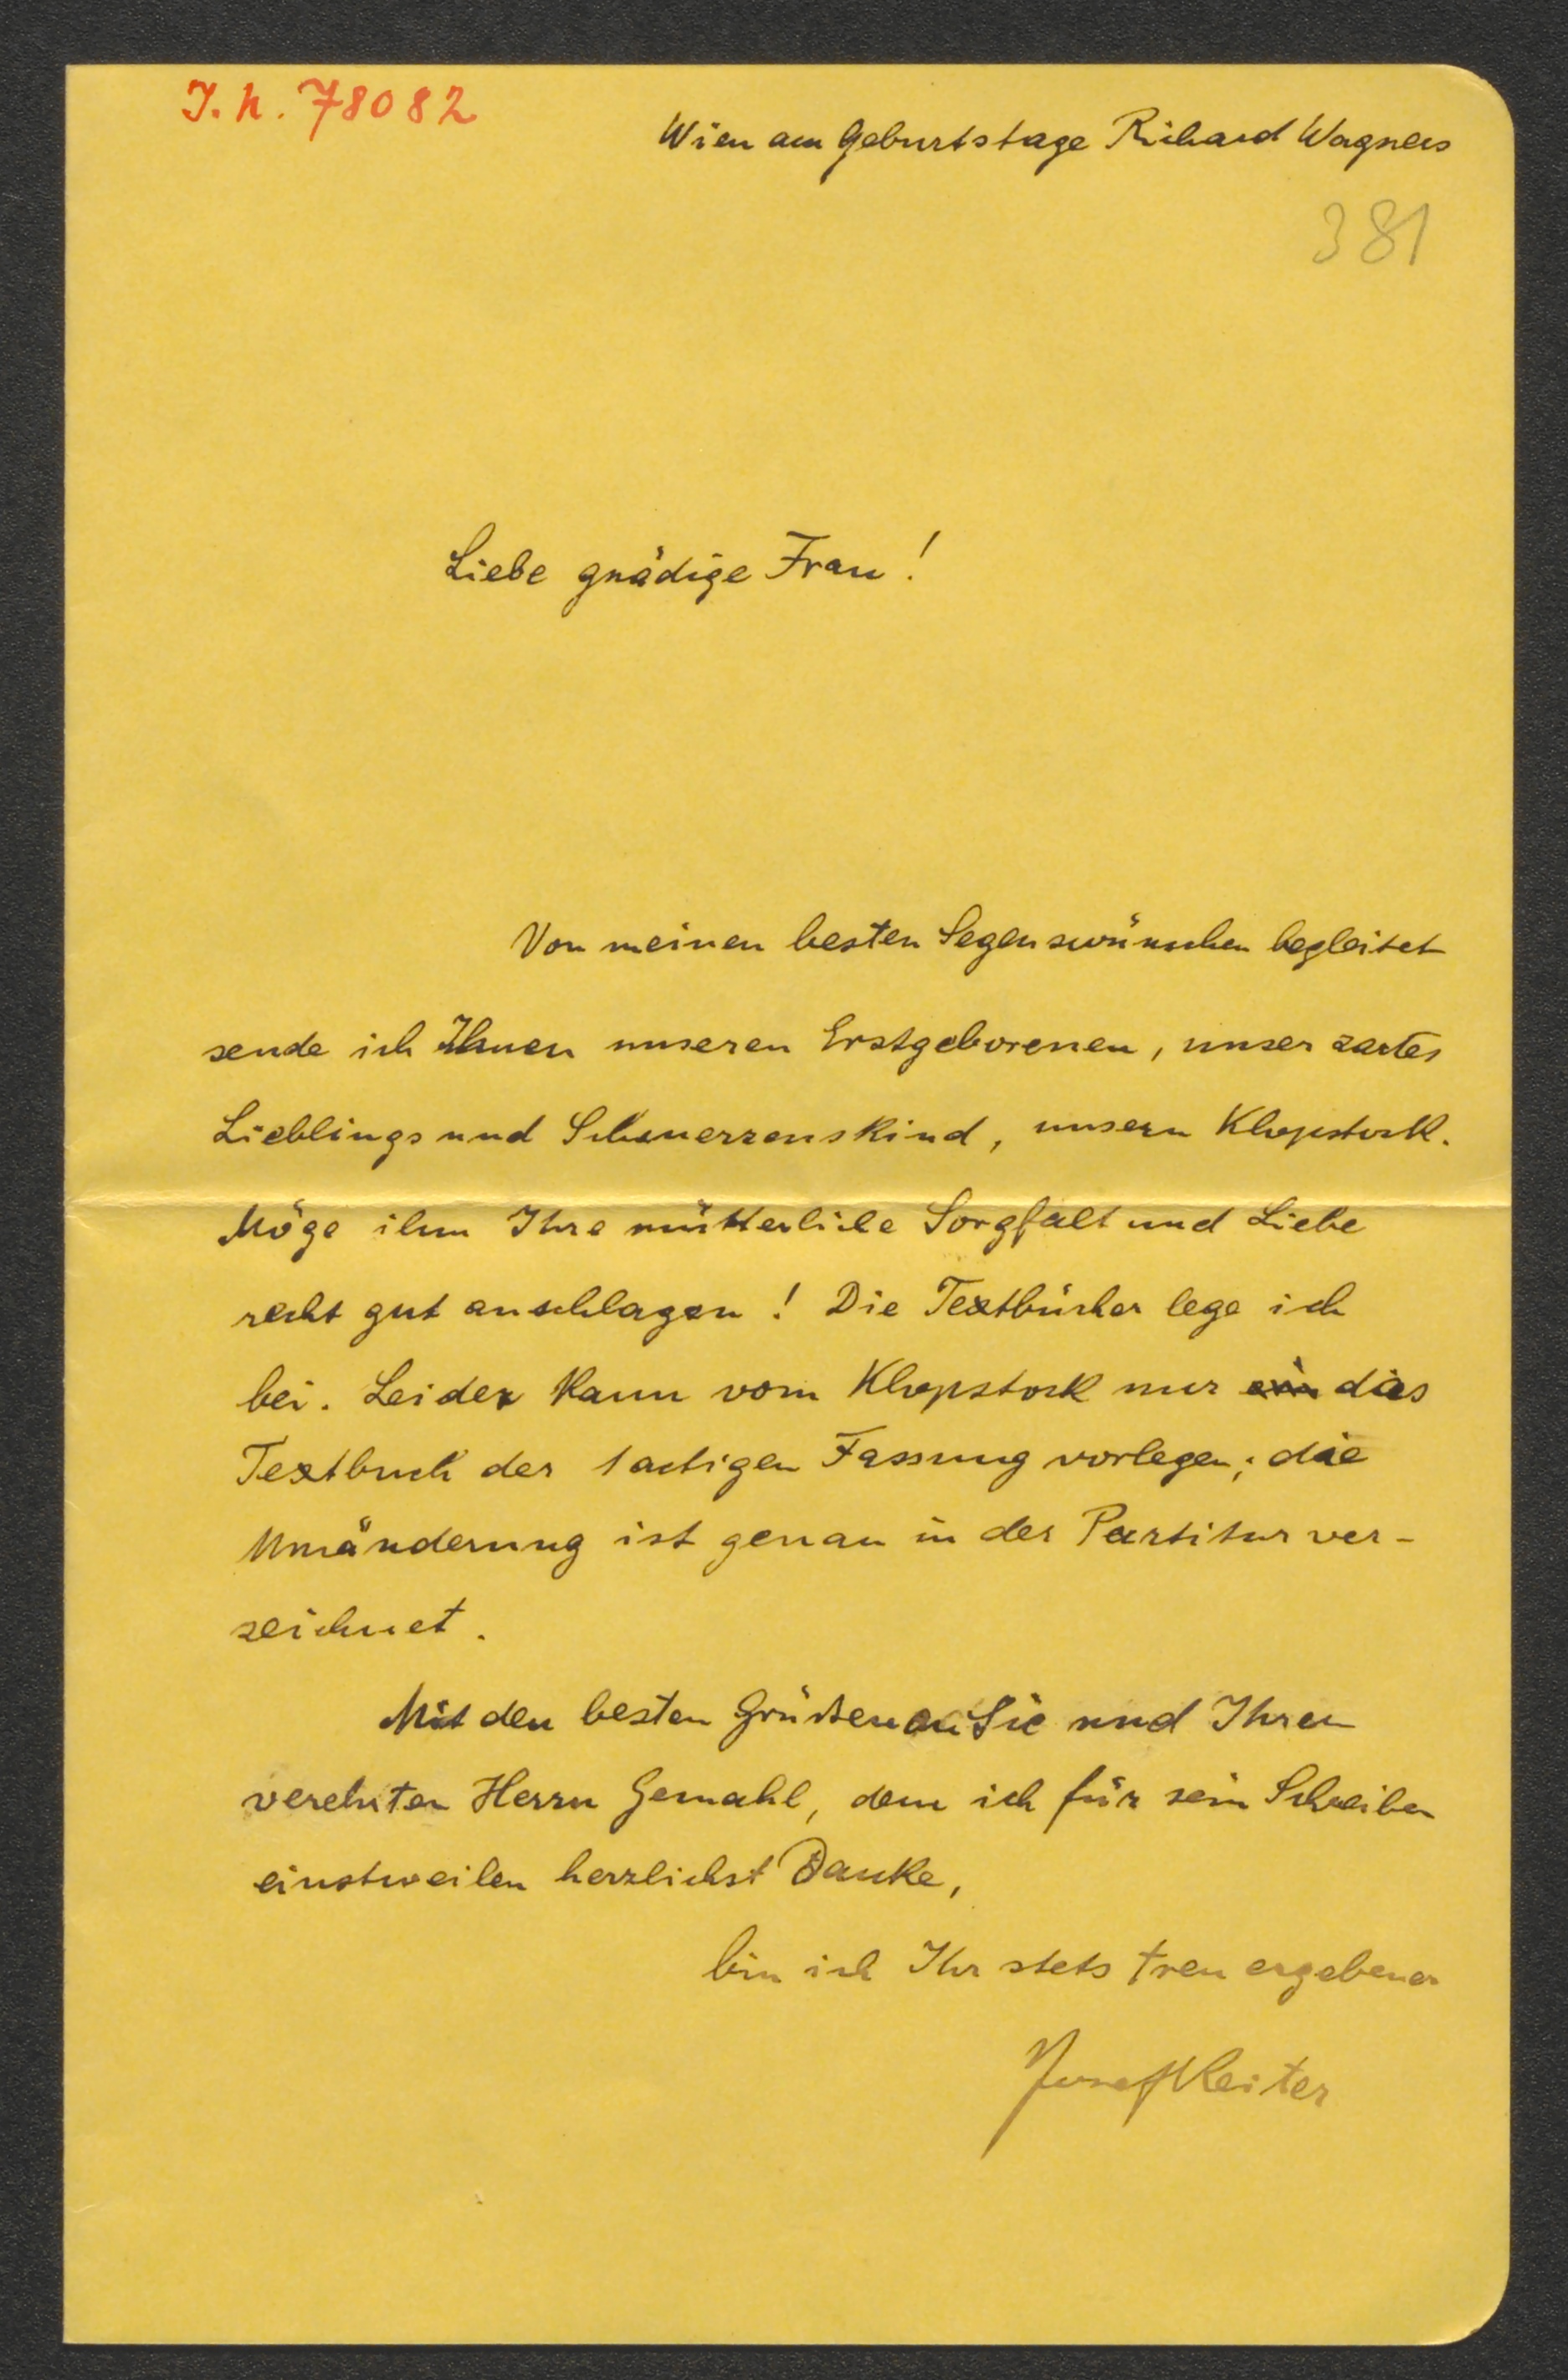 J. N. 78082
Wien am Geburtstage Richard Wagners
381
Liebe gnädige Frau!
Von meinen besten Segenswünschen begleitet
sende ich Ihnen unseren Erstgeborenen, unser zartes
Lieblings und Schmerzenskind, unsern Klopstock.
Möge ihm Ihre mütterliche Sorgfalt und Liebe
recht gut anschlagen! Die Textbücher lege ich
bei. Leider kann vom Klopstock nur ein das
Textbuch der 1actigen Fassung vorlegen; die
Umänderung ist genau in der Partitur ver-
zeichnet.
Mit den besten Grüssen an Sie und Ihren
verehrten Herrn Gemahl, dem ich für sein Schreiben
einstweilen herzlichst Danke,
bin ich Ihr stets treu ergebener
Josef Reiter